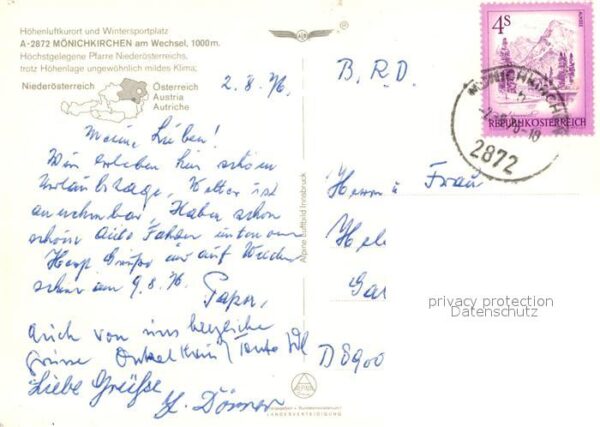 Höhenluftkurort und Wintersportplatz
A-2872 MÖNICHKIRCHEN am Wechsel, 1000 m.
Höchstgelegene Pfarre Niederösterreichs,
trotz Höhenlage ungewöhnlich mildes Klima;
Niederösterreich
Österreich
Austria
Autriche
2.8.76.
Meine Lieben!
Wir erleben hier schöne
Urlaubstage, Wetter ist
annehmbar, Haben schon
schöne Auto Fahrten unternom
Herzl Grüße und auf Wieder
sehen am 9.8.76.
Papa,
auch von uns herzliche
Grüsse Onkel Tante
Liebe Grüße
Alpine Luftbild Innsbruck
B.R.D.
4s
REPUBLIK ÖSTERREICH
MÖNICHKIRCHEN
2872
Herrn u Frau
Hel
Gar
D 8900
privacy protection
Datenschutz
LANDESVERTEIDIGUNG